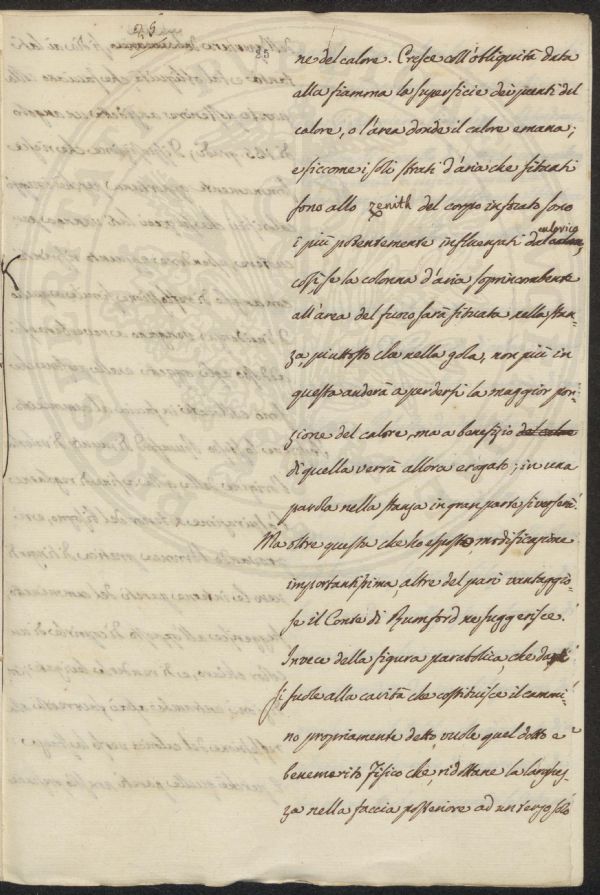 25
25
ne del calore. Cresce coll'obliquità data
alla fiamma la superficie dei punti del
calore, o l'area donde il calore emana;
e siccome i soli strati d'aria che situati
sono allo zenith del corpo infocato sono
i più potentemente influenzati dal calorico,
così se la colonna d'aria soprincombente
all'area del fuoco sarà situata nella stan-
za, piuttosto che nella gola, non più in
questa anderà a perdersi la maggior por-
zione del calore, ma a benefizio del calore
di quella verrà allora erogato; in una
parola nella stanza in gran parte si verserà.
Ma oltre questa che ho esposta modificazione
importantissima, altre del pari vantaggio-
se il Conte di Rumford ne suggerisce.
Invece della figura parabolica, che dar
si suole alla cavità che costituisce il cammi-
no propriamente detto, vuole quel dotto e
benemerito Fisico che, ridottane la larghez-
za nella faccia posteriore ad un terzo solo